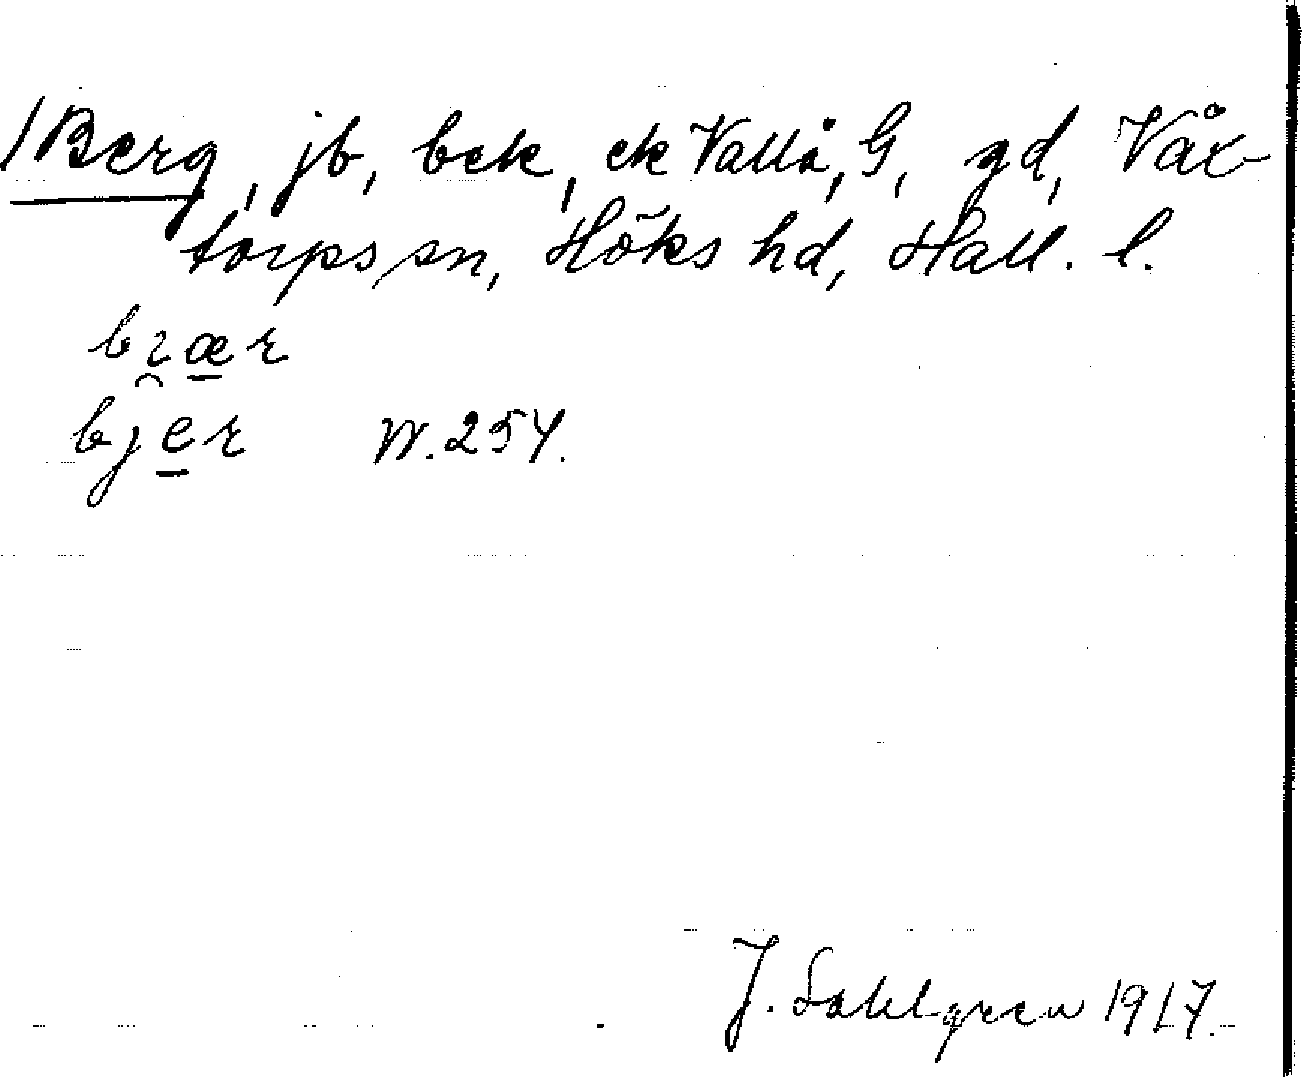 /Berg, jb, bek, ek Vallå, G, gd, Våx-
torps sn, Höks hd, Hall. l.
bɿær
bjer W. 254.
J. Sahlgren 1917.